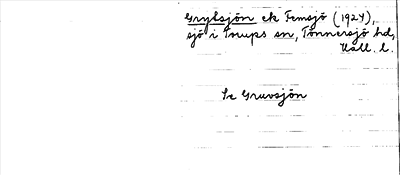 Grylsjön ek Femsjö (1924),
sjö i Snups sn, Tönnersjö hd,
Hall. l.
Se Gruvsjön